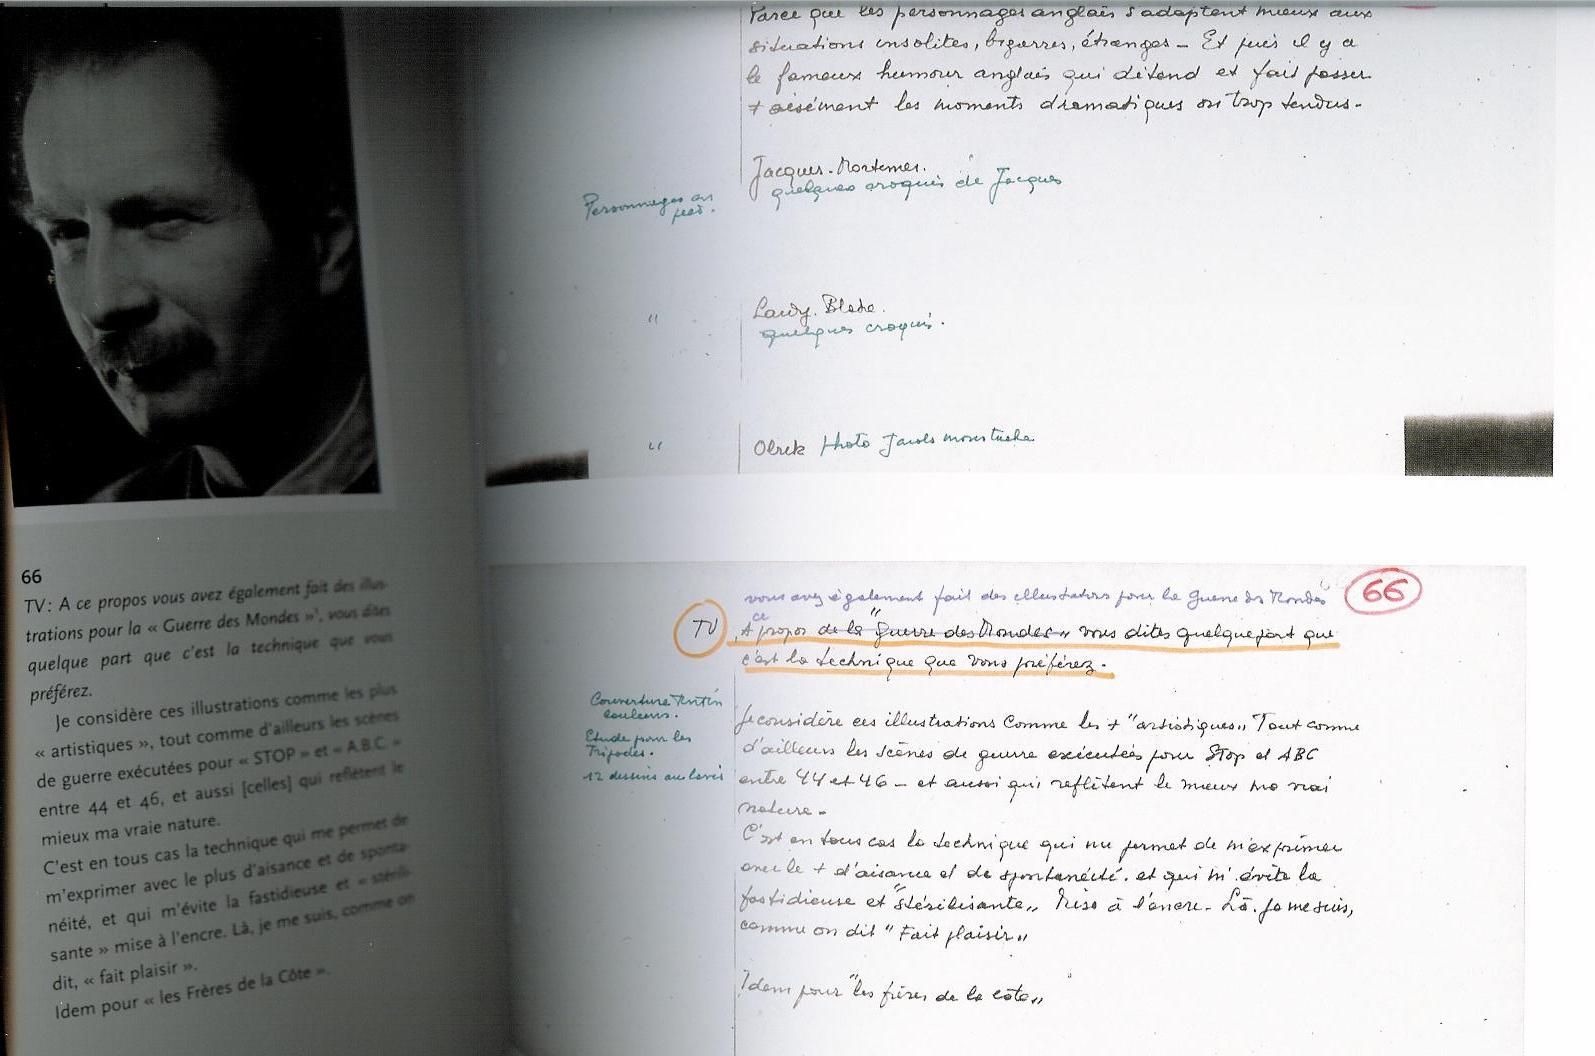 66
TV : A ce propos vous avez également fait des illus-
trations pour la « Guerre des Mondes »¹, vous dites
quelque part que c'est la technique que vous
préférez.
Je considère ces illustrations comme les plus
« artistiques », tout comme d'ailleurs les scènes
de guerre exécutées pour « STOP » et « A.B.C. »
entre 44 et 46, et aussi [celles] qui reflètent le
mieux ma vraie nature.
C'est en tous cas la technique qui me permet de
m'exprimer avec le plus d'aisance et de sponta-
néité, et qui m'évite la fastidieuse et « stérili-
sante » mise à l'encre. Là, je me suis, comme on
dit, « fait plaisir ».
Idem pour « les Frères de la Côte ».
Parce que les personnages anglais s'adaptent mieux aux
situations insolites, bizarres, étranges - Et puis il y a
le fameux humour anglais qui détend et fait passer
+ aisément les moments dramatiques ou trop tendus -
Jacques. Mortemer.
quelques croquis de Jacques
Personnages en
pied.
" Lady. Blake.
quelques croquis.
" Olrik Photo Jacobs moustache
66
vous avez également fait des illustrations pour la Guerre des Mondes
ce
TV A propos de la "Guerre des Mondes" vous dites quelque part que
c'est la technique que vous préférez.
Couverture Tintin
couleurs.
Etude pour les
Tripodes.
12 dessins au lavis
Je considère ces illustrations comme les + "artistiques" Tout comme
d'ailleurs les scènes de guerre exécutées pour Stop et ABC
entre 44 et 46 - et aussi qui reflètent le mieux ma vrai
nature -
C'est en tous cas la technique qui me permet de m'exprimer
avec le + d'aisance et de spontanéité. et qui m'évite la
fastidieuse et "stérilisante" Mise à l'encre - Là. je me suis,
comme on dit "Fait plaisir"
Idem pour "les frères de la côte"